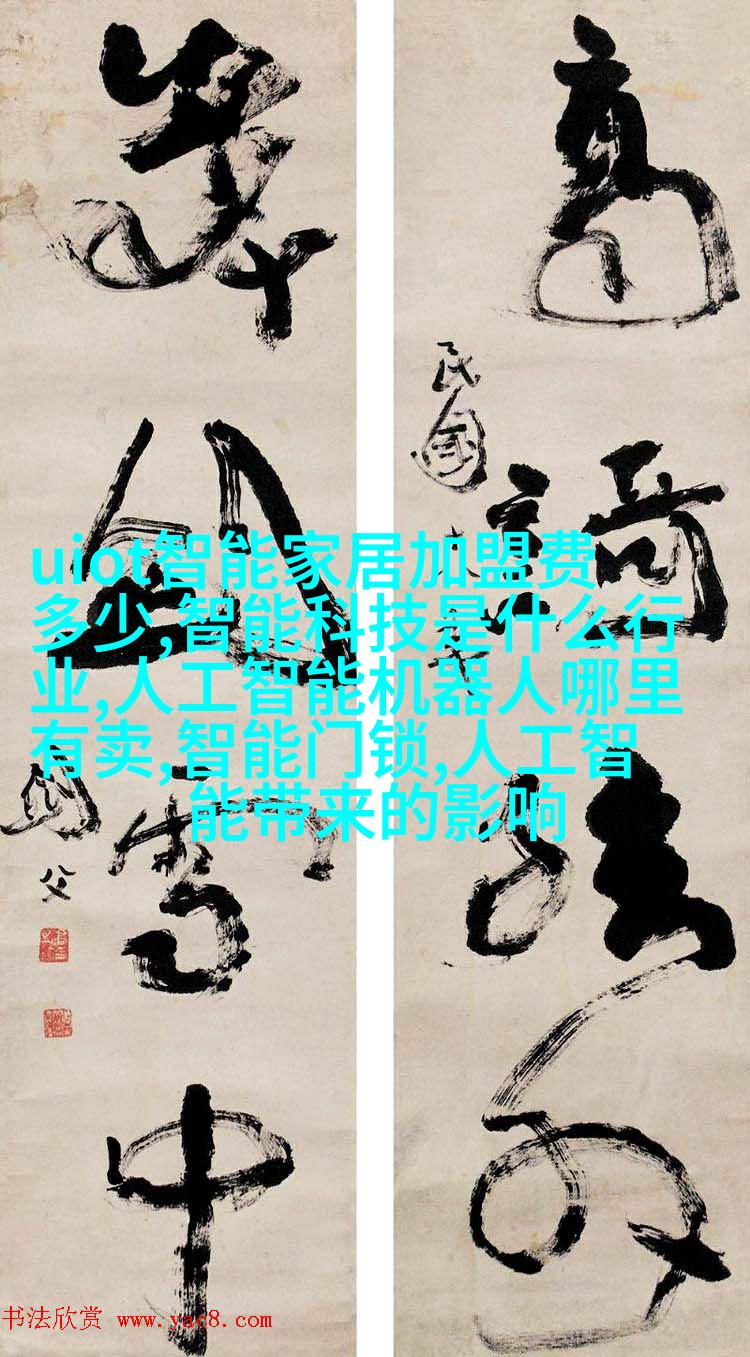 高
民國
雪中
父
uiot智能家居加盟费
多少,智能科技是什么行
业,人工智能机器人哪里
有卖,智能门锁,人工智
能带来的影响
书法欣赏 www.yac8.com